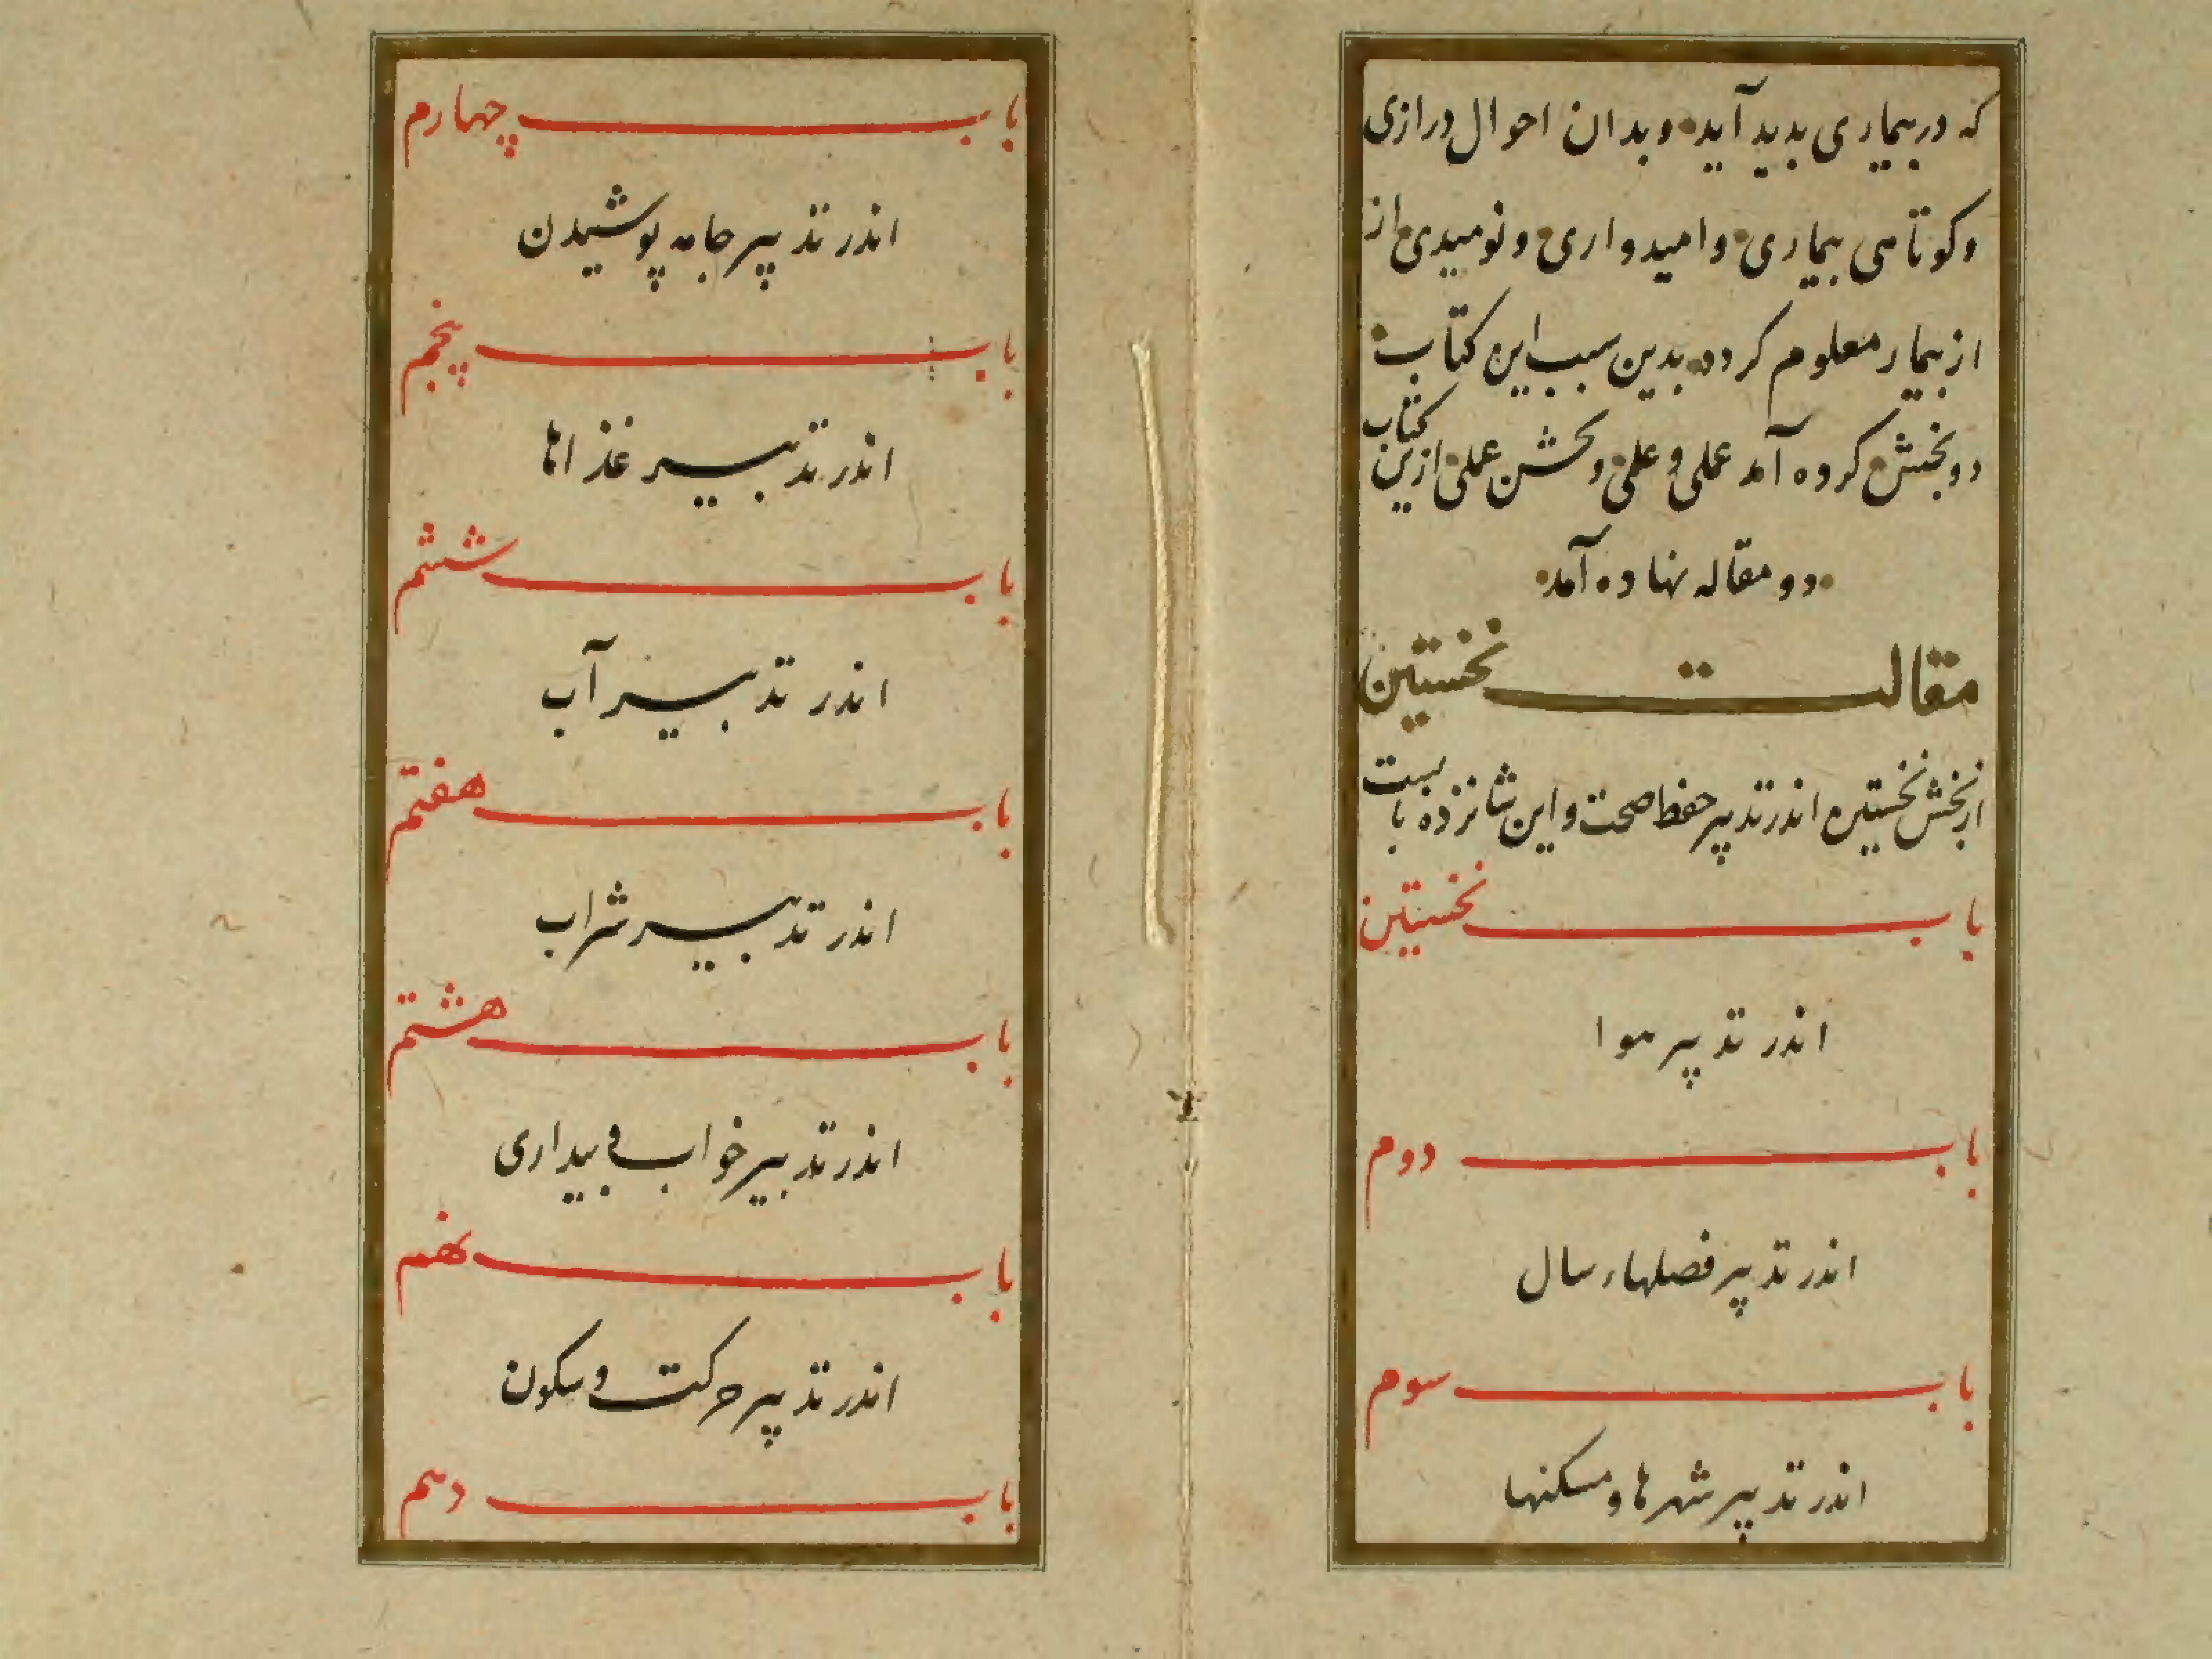 که در بیماری بدید آید و بدان احوال درازی
و کوتاهی بیماری و امیدواری و نومیدی از
از بیمار معلوم کردد بدین سبب این کتاب
دو بخش کرده آمد عملی و علمی و بخش عملی ازین کتاب
دو مقاله نهاده آمد
مقالت نخستین
از بخش نخستین اندر تدبیر حفظ صحت و این شانزده بابست
باب نخستین
اندر تدبیر هوا
باب دوم
اندر تدبیر فصلهاء سال
باب سوم
اندر تدبیر شهرها و مسکنها
باب چهارم
اندر تدبیر جامه پوشیدن
باب پنجم
اندر تدبیر غذاها
باب ششم
اندر تدبیر آب
باب هفتم
اندر تدبیر شراب
باب هشتم
اندر تدبیر خواب و بیداری
باب نهم
اندر تدبیر حرکت و سکون
باب دهم